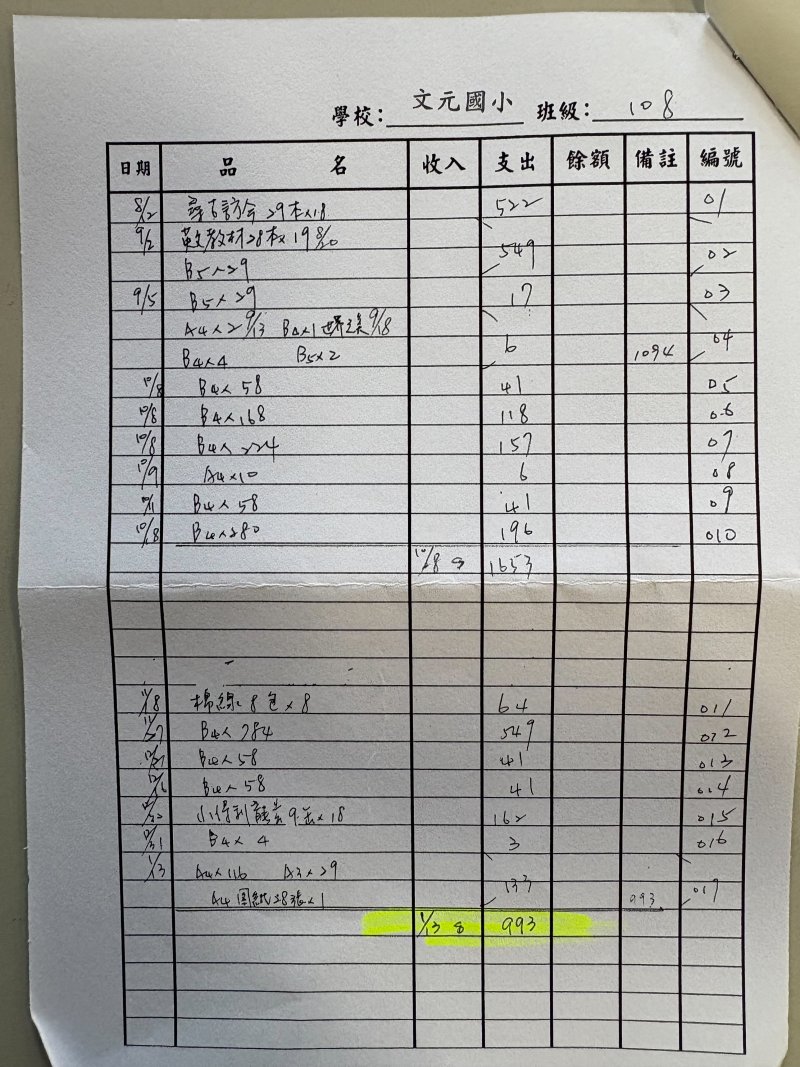 學校： 文元國小 班級： 108
日期 品 名 收入 支出 餘額 備註 編號
8/2 29本×18 522 01
9/2 英文教材28本×19 8/20
B5×29 549 02
9/5 B5×29 17 03
A4×2 9/13 B4×1 9/18
B4×4 B5×2 6 1094 04
10/8 B4×58 41 05
10/8 B4×168 118 06
10/8 B4×224 157 07
10/9 A4×10 6 08
10/11 B4×58 41 09
10/18 B4×280 196 010
10/18 1653
11/18 棉線8包×8 64 011
11/27 B4×784 549 012
B4×58 41 013
B4×58 41 014
×18 162 015
12/31 B4×4 3 016
1/13 A4×116 A3×29
A4圖紙28張×1 133 993 017
1/13 993